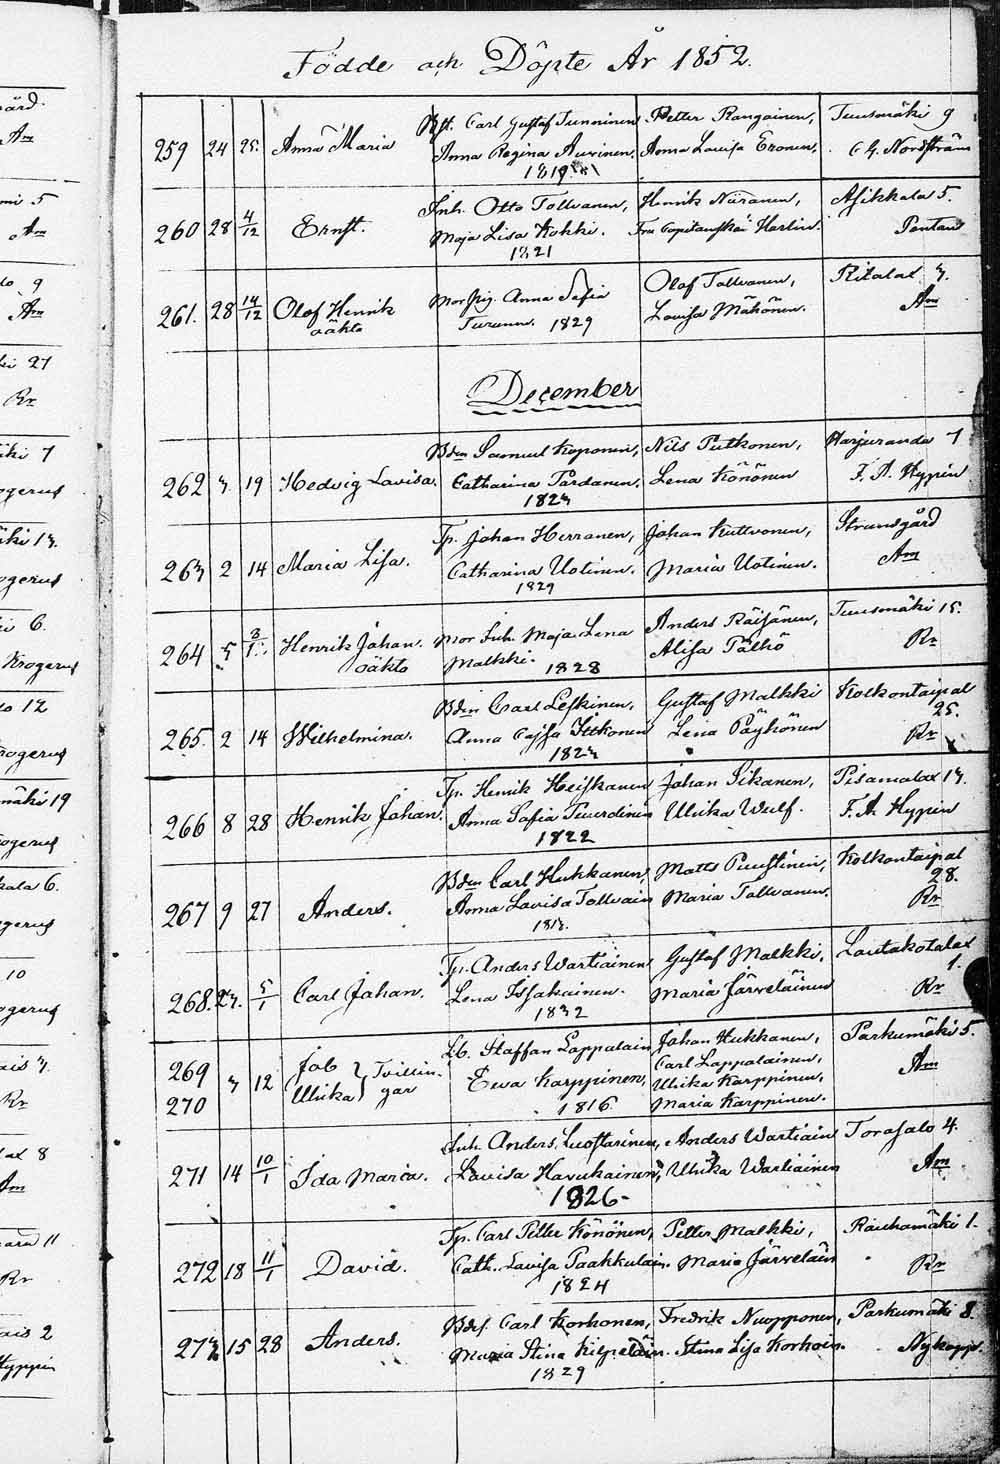 Födde och Döpte År 1852.
259 24 25. Anna Maria Bst. Carl Gustaf Tunninen Petter Rangainen, Tuusmäki 9
Anna Regina Auvinen. Anna Lovisa Eronen. C. G. Nordström
1819.
260 28 4/12 Ernst. Inh. Otto Tolvanen, Henrik Niiranen, Asikkala 5.
Maja Lisa Kokki. Fru Capitanskan Harlin. Pontan
1821
261. 28 14/12 Olof Henrik Mor pig. Anna Sofia Olof Tolvanen, Ritalax 3.
oäkta Turunen. 1829 Lovisa Mähönen. Am
December
262 3. 19 Hedvig Lovisa. Bden Samuel Koponen, Nils Putkonen, Harjuranda 7
Catharina Pardanen. Lena Könönen F. A. Hypén
1823
263 2 14 Maria Lisa. Tp. Johan Herranen, Johan Kuttvonen, Strumsgård
Catharina Uotinen. Maria Uotinen. Am
1829
264 5 Henrik Johan. Mor Inh. Maja Lena Anders Räisänen, Tuusmäki 15.
oäkta Malkki. 1828 Alisa Pälkö Rr
265. 2 14 Wilhelmina. Bden Carl Leskinen, Gustaf Malkki Kolkontaipal
Anna Cajsa Ikkonen Lena Päyhönen 25.
1823 Rr
266 8 28 Henrik Johan. Tp. Henrik Heiskanen Johan Sikanen, Pisamalax 13.
Anna Sofia Ulrika Wulf. F. A. Hypén
1822
267 9 27 Anders. Bden Carl Hukkanen, Matts Puustinen, Kolkontaipal
Anna Lovisa Tollvain Maria Tollvanen. 28.
1813. Rr
268. 23. 5/1 Carl Johan. Tp. Anders Wartiainen Gustaf Malkki, Lautakotalax
Lena Issakainen. Maria Järveläinen 1.
1832 Rr
269 3 12 Job } Tvillin- Lb. Staffan Lappalain Johan Hukkanen, Parkumäki 5.
270 Ulrika } gar Ewa Karppinen, Carl Lappalainen, Am
1816 Ulrika Karppinen,
Maria Karppinen.
271 14 10/1 Ida Maria. Inh. Anders Luostarinen, Anders Wartiain Torasalo 4.
Lovisa Havukainen, Ulrika Wartiainen Am
1826-
272 18 11/1 David. Tp. Carl Petter Könönen, Petter Malkki, Rauhamäki 1.
Cath. Lovisa Paakkulain. Maria Järveläin Rr
1824
273 15 28 Anders. Bdes. Carl Korhonen, Fredrik Nuopponen, Parkumäki 8.
Maria Stina Kilpeläin. Stina Lisa Korhoin. Nykopp.
1829